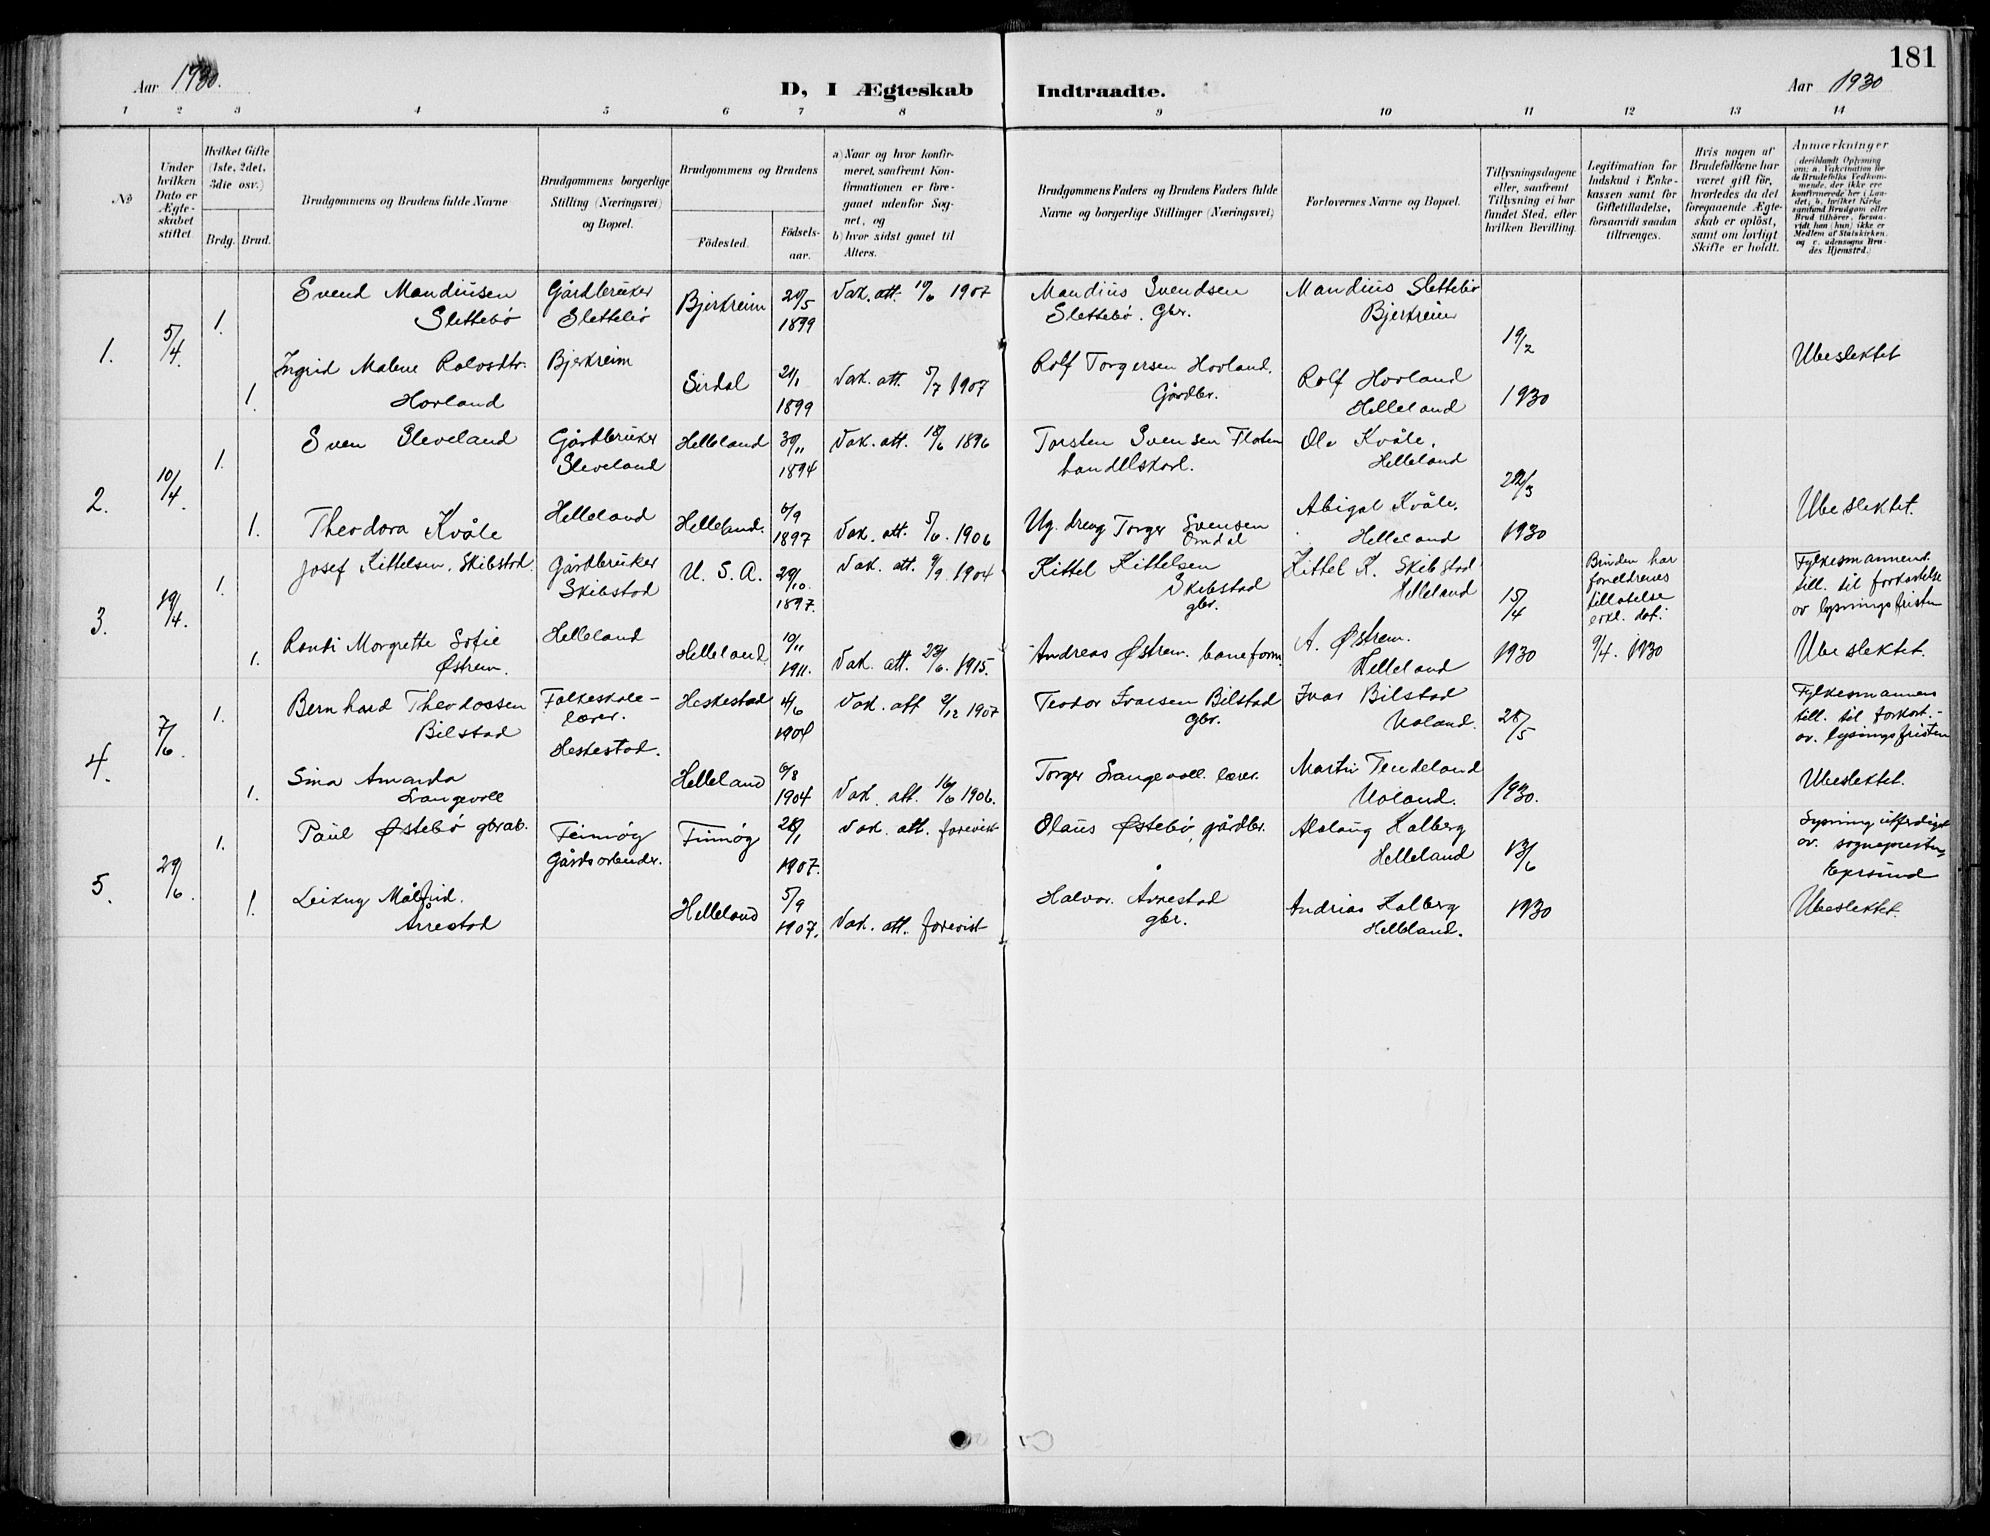 181
Aar 1930.
D, I Ægteskab Indtraadte.
Aar 1930
1 2 3 4 5 6 7 8 9 10 11 12 13 14
No
Under hvilken Dato er Ægteskabet stiftet.
Hvilket Gifte (1ste, 2det, 3die osv.)
Brdg. Brud.
Brudgommens og Brudens fulde Navne
Brudgommens borgerlige Stilling (Næringsvei) og Bopæl.
Brudgommens og Brudens
Födested.
Födselsaar.
a) Naar og hvor konfirmeret, saafremt Konfirmationen er foregaaet udenfor Sognet, og
b) hvor sidst gaaet til Alters.
Brudgommens Faders og Brudens Faders fulde Navne og borgerlige Stillinger (Næringsvei)
Forlovernes Navne og Bopæl.
Tillysningsdagene eller, saafremt Tillysning ei har fundet Sted, efter hvilken Bevilling.
Legitimation for Indskud i Enkekassen samt for Giftetilladelse, forsaavidt saadan tiltrænges.
Hvis nogen af Brudefolkene har været gift för, hvorledes da det foregaaende Ægteskab er oplöst, samt om lovligt Skifte er holdt.
Anmærkninger (deriblandt Oplysning om: a. Vakcination for de Brudefolks Vedkommende, der ikke ere konfirmerede her i Landet; b. hvilket Kirkesamfund Brudgom eller Brud tilhörer, forsaavidt han (hun) ikke er Medlem af Statskirken, og c. udensogns Brudes Hjemsted.)
1. 5/4.
1. Svend Mandiusen Slettebö
Gårdbruker Slettebö Bjerkreim
Bjerkreim
20/5 1899
Vak. att. 19/6 1907
Mandius Svendsen Slettebö. Gbr.
Mandius Slettebö Bjerkreim
19/2 1930
1. Ingrid Malene Rolvsdtr. Hovland
Sirdal
21/1 1899
Vak. att. 5/7 1907
Rolf Torgersen Hovland. Gårdbr.
Rolf Hovland Helleland
Ubeslektet
2. 10/4.
1. Sven Sleveland
Gårdbruker Sleveland Helleland
Helleland
30/11 1894
Vak. att. 18/6 1896
Torsten Svensen Floten handelskarl.
Ole Kvåle, Helleland
22/3 1930
1. Theodora Kvåle
Helleland.
6/9 1897
Vak. att. 5/6. 1906
Ug. dreng Torger Svensen Omdal
Abigal Kvåle. Helleland
Ubeslektet.
3. 19/4.
1. Josef Kittelsen Skibstad.
Gårdbruker Skibstad Helleland
U. S. A.
29/10. 1897.
Vak. att. 9/9. 1904
Kittel Kittelsen Skibstad gbr.
Kittel K. Skibstad Helleland
15/4 1930
Bruden har foreldrenes tillatelse erkl. dat. 9/4. 1930
Fylkesmannens till. til forkortelse av lysningsfristen
1. Randi Margrethe Sofie Østrem.
Helleland
10/11 1911.
Vak. att. 23/6. 1915.
Andreas Østrem. baneform.
A. Østrem. Helleland
Ubeslektet.
4. 7/6.
1. Bernhard Theodossen Bilstad
Folkeskolelærer. Heskestad.
Heskestad
4/6 1904
Vak. att 9/12 1907
Teodor Ivarsen Bilstad gbr.
Ivar Bilstad Ualand.
28/5 1930.
Fylkesmannens till. til forkort. av. lysningsfristen
1. Sina Amanda Svangevoll
Helleland
6/8 1904
Vak. att. 16/6 1906.
Torger Svangevoll. lærer.
Martin Tendeland Ualand.
Ubeslektet.
5. 29/6.
1. Paul Østebö gbrab.
Finnöy Gårdsarbeider.
Finnöy
28/1 1907.
Vak. att. forevist
Olaus Østebö, gårdbr.
Aslaug Kalberg Helleland
13/6 1930
Lysning utferdiget av. sognepresten, Egersund
1. Leikny Målfrid Årrestad
Helleland
5/9 1907.
Vak. att. forevist
Halvor Årrestad gbr.
Andrias Kalberg Helleland.
Ubeslektet.